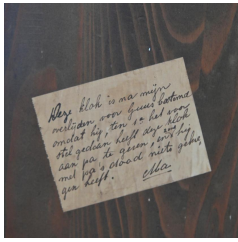 Deze klok is na mijn
overlijden voor Guus bestemd
omdat hij, ten 1e het voor
stel gedaan heeft deze klok
aan pa te geven, en hij
met pa's dood niets gekre
gen heeft.
Ma